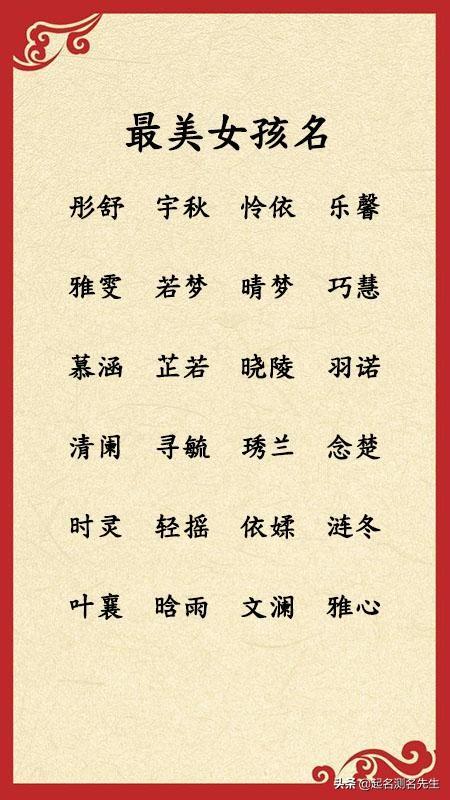 最美女孩名
彤舒 宇秋 怜依 乐馨
雅雯 若梦 晴梦 巧慧
慕涵 芷若 晓陵 羽诺
清阑 寻毓 琇兰 念楚
时灵 轻摇 依媃 涟冬
叶襄 晗雨 文澜 雅心
头条 @起名测名先生